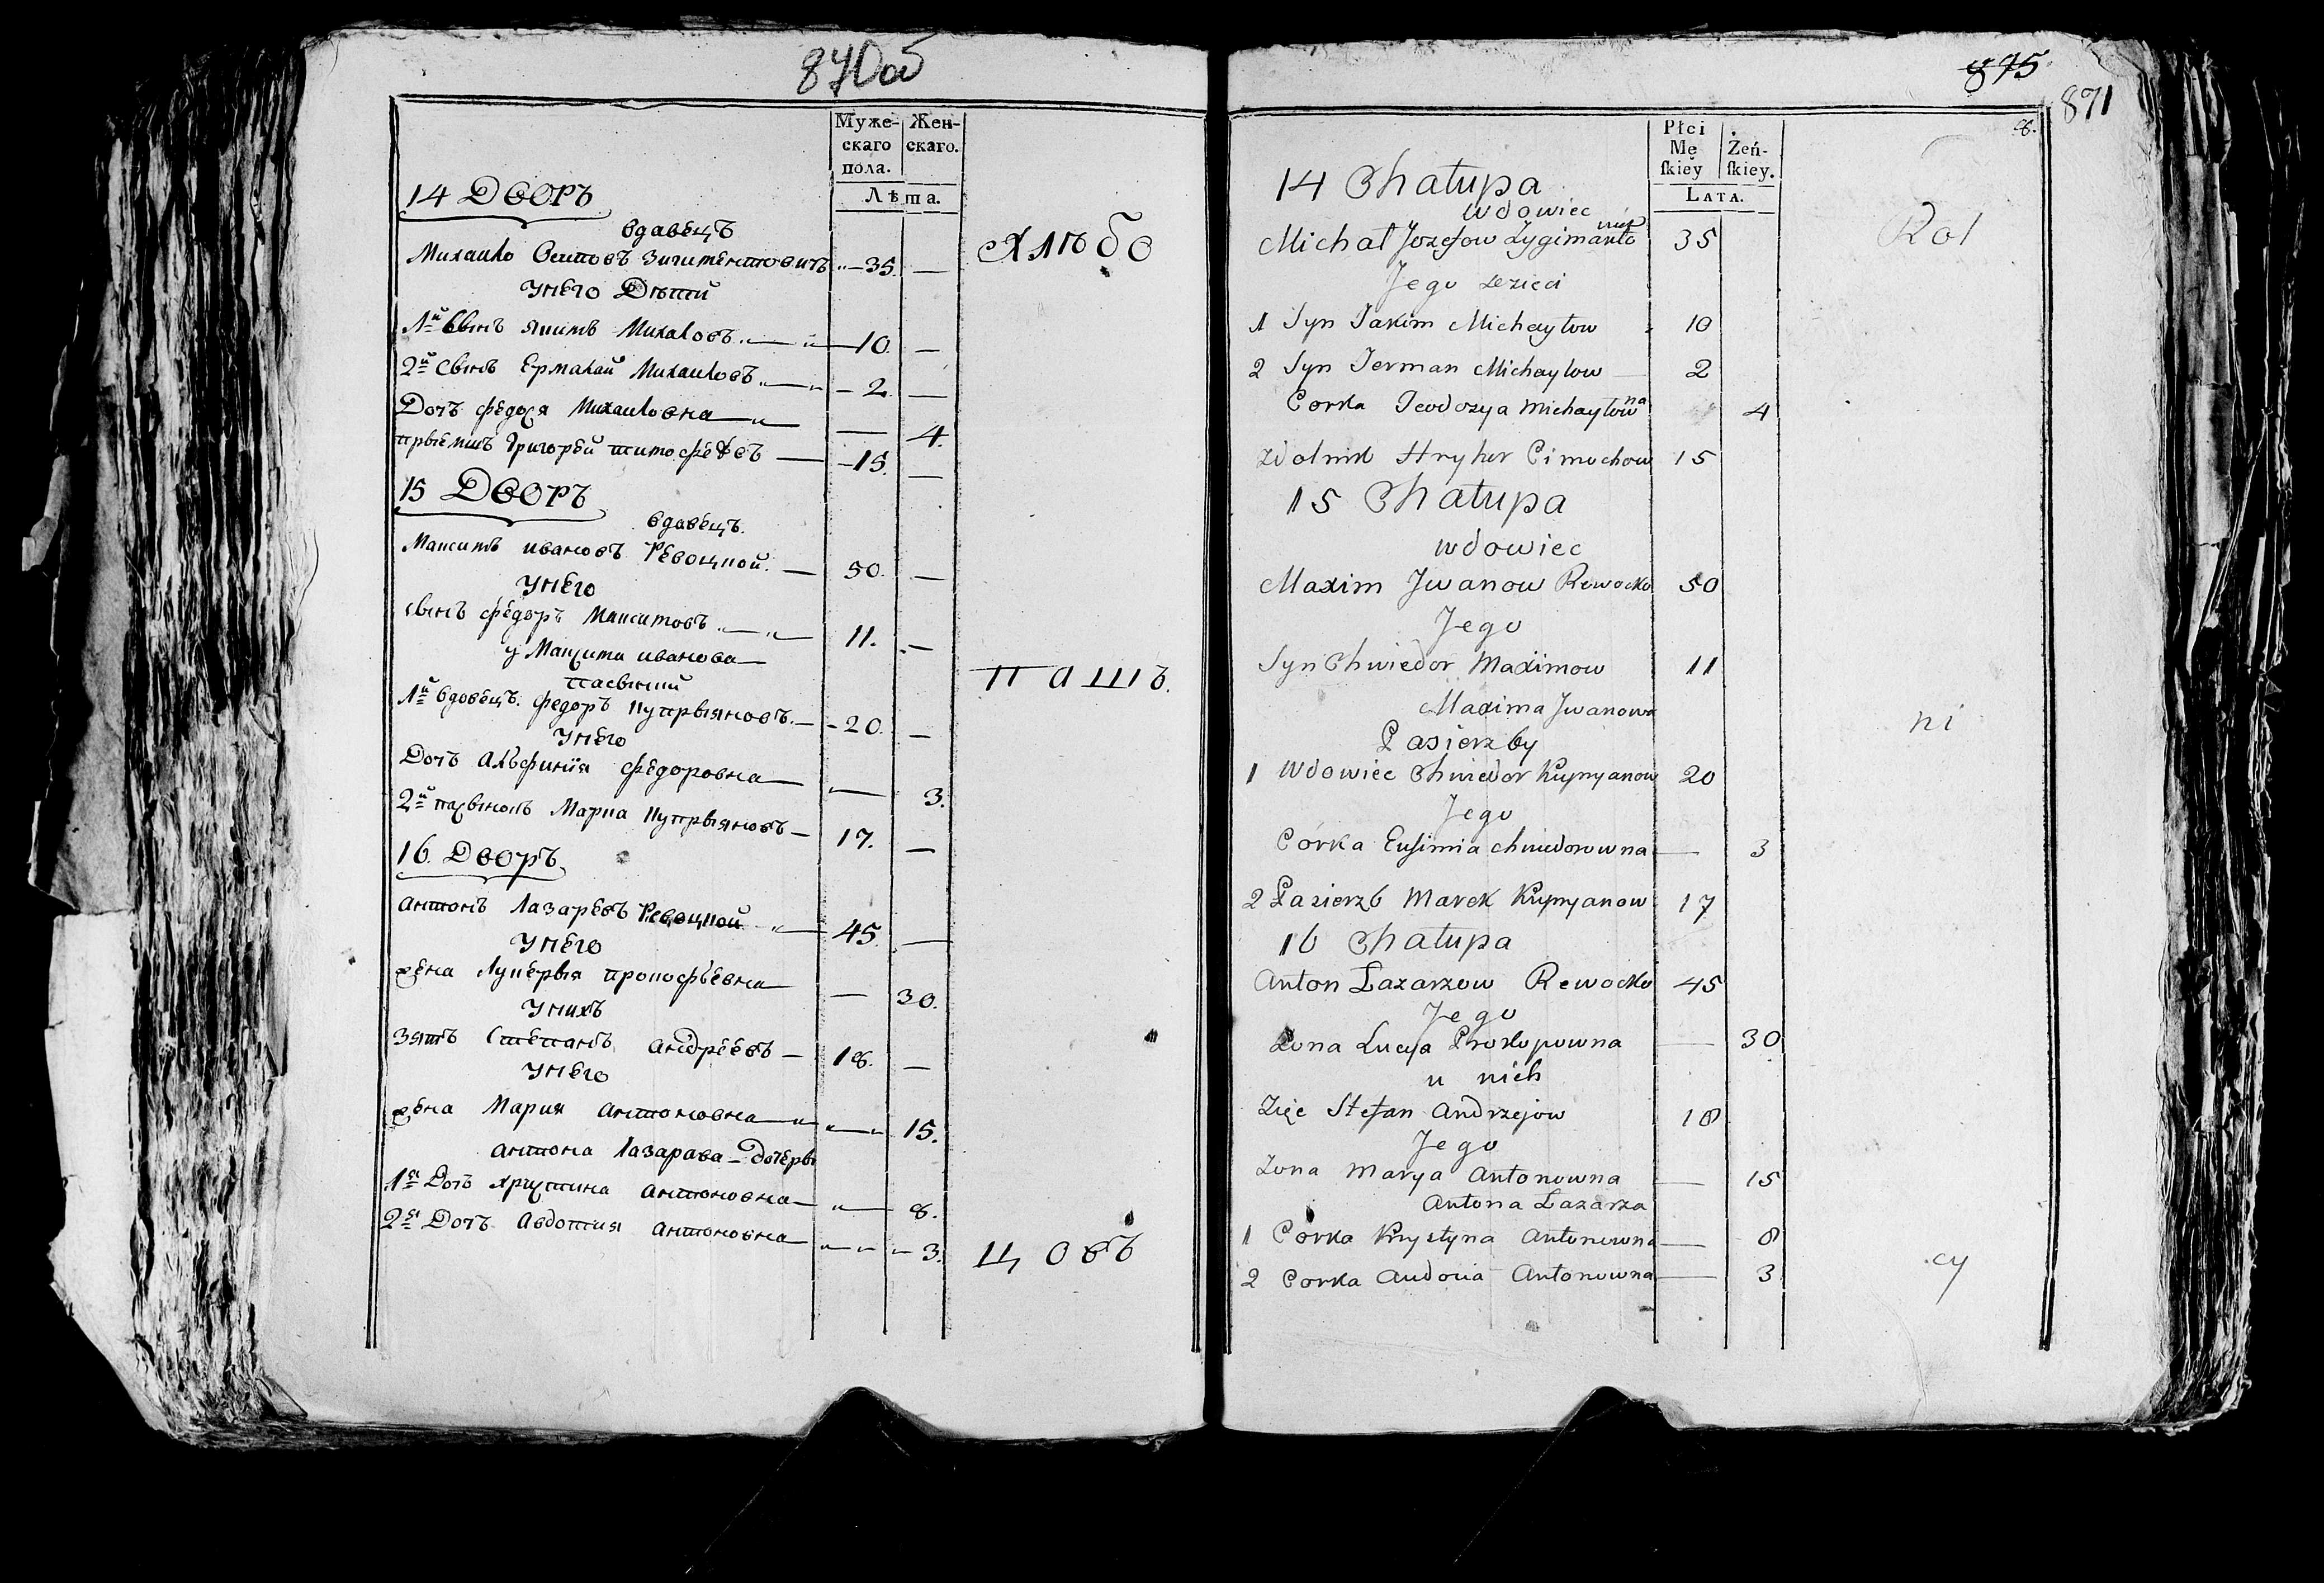 870об
Муже- Жен-
скаго скаго.
пола.
Лѣта.
14 Дворъ
вдавецъ
Михаило Осиповъ Зигиментовичъ 35. —
Унего Дѣти
1й Сынъ Якимъ Михаловъ 10. —
2й Сынъ Ермалай Михаиловъ 2. —
Дочь Федося Михаиловна — 4.
Прыемшъ Григорей Тимофеевъ 15. —
15 Дворъ
вдавецъ.
Максимъ Ивановъ Ревоцкой. 50. —
Унего
Сынъ Федоръ Максимовъ 11. —
у Максима Иванова
Пасынки
1й вдовецъ Федоръ Купрыяновъ 20. —
Унего
Дочь Ахъфимія Федоровна — 3.
2й пасынокъ Марка Купрыяновъ 17. —
16. Дворъ
Антонъ Лазаревъ Ревоцкой 45. —
Унего
жена Лукерья Прокофьевна — 30.
Унихъ
Зять Степанъ Андреевъ 18. —
Унего
жена Мария Антоновна — 15.
Антона Лазарава Дочеры
1я Дочь Христина Антоновна — 8.
2я Дочь Авдотия Антоновна — 3.
Хлѣбо
пашъ.
цовъ
875
871
8.
Płci
Mę Żeń-
ſkiey ſkiey.
LATA.
14 Chałupa
wdowiec
Michał Jozefow Zygimanto
wicz 35
Jego dzieci
1 Syn Jakim Michayłow 10
2 Syn Jerman Michayłow 2
Corka Teodozya Michayłowna 4
Zdolnik Hryhor Cimochow 15
15 Chałupa
wdowiec
Maxim Jwanow Rewocko 50
Jego
Syn Chwiedor Maximow 11
Maxima Jwanowa
Pasierzby
1 Wdowiec Chwiedor Kupryanow 20
Jego
Córka Eufimia Chwiedorowna — 3
2 Pasierzb Marek Kupryanow 17
16 Chałupa
Anton Łazarzow Rewocko 45
Jego
Zona Łucya Prokopowna — 30
u nich
Zięc Stefan Andrzejow 18
Jego
Zona Marya Antonowna — 15
Antona Łazarza
1 Corka Krystyna Antonowna — 8
2 Corka Audocia Antonowna — 3
Rol
ni
cy